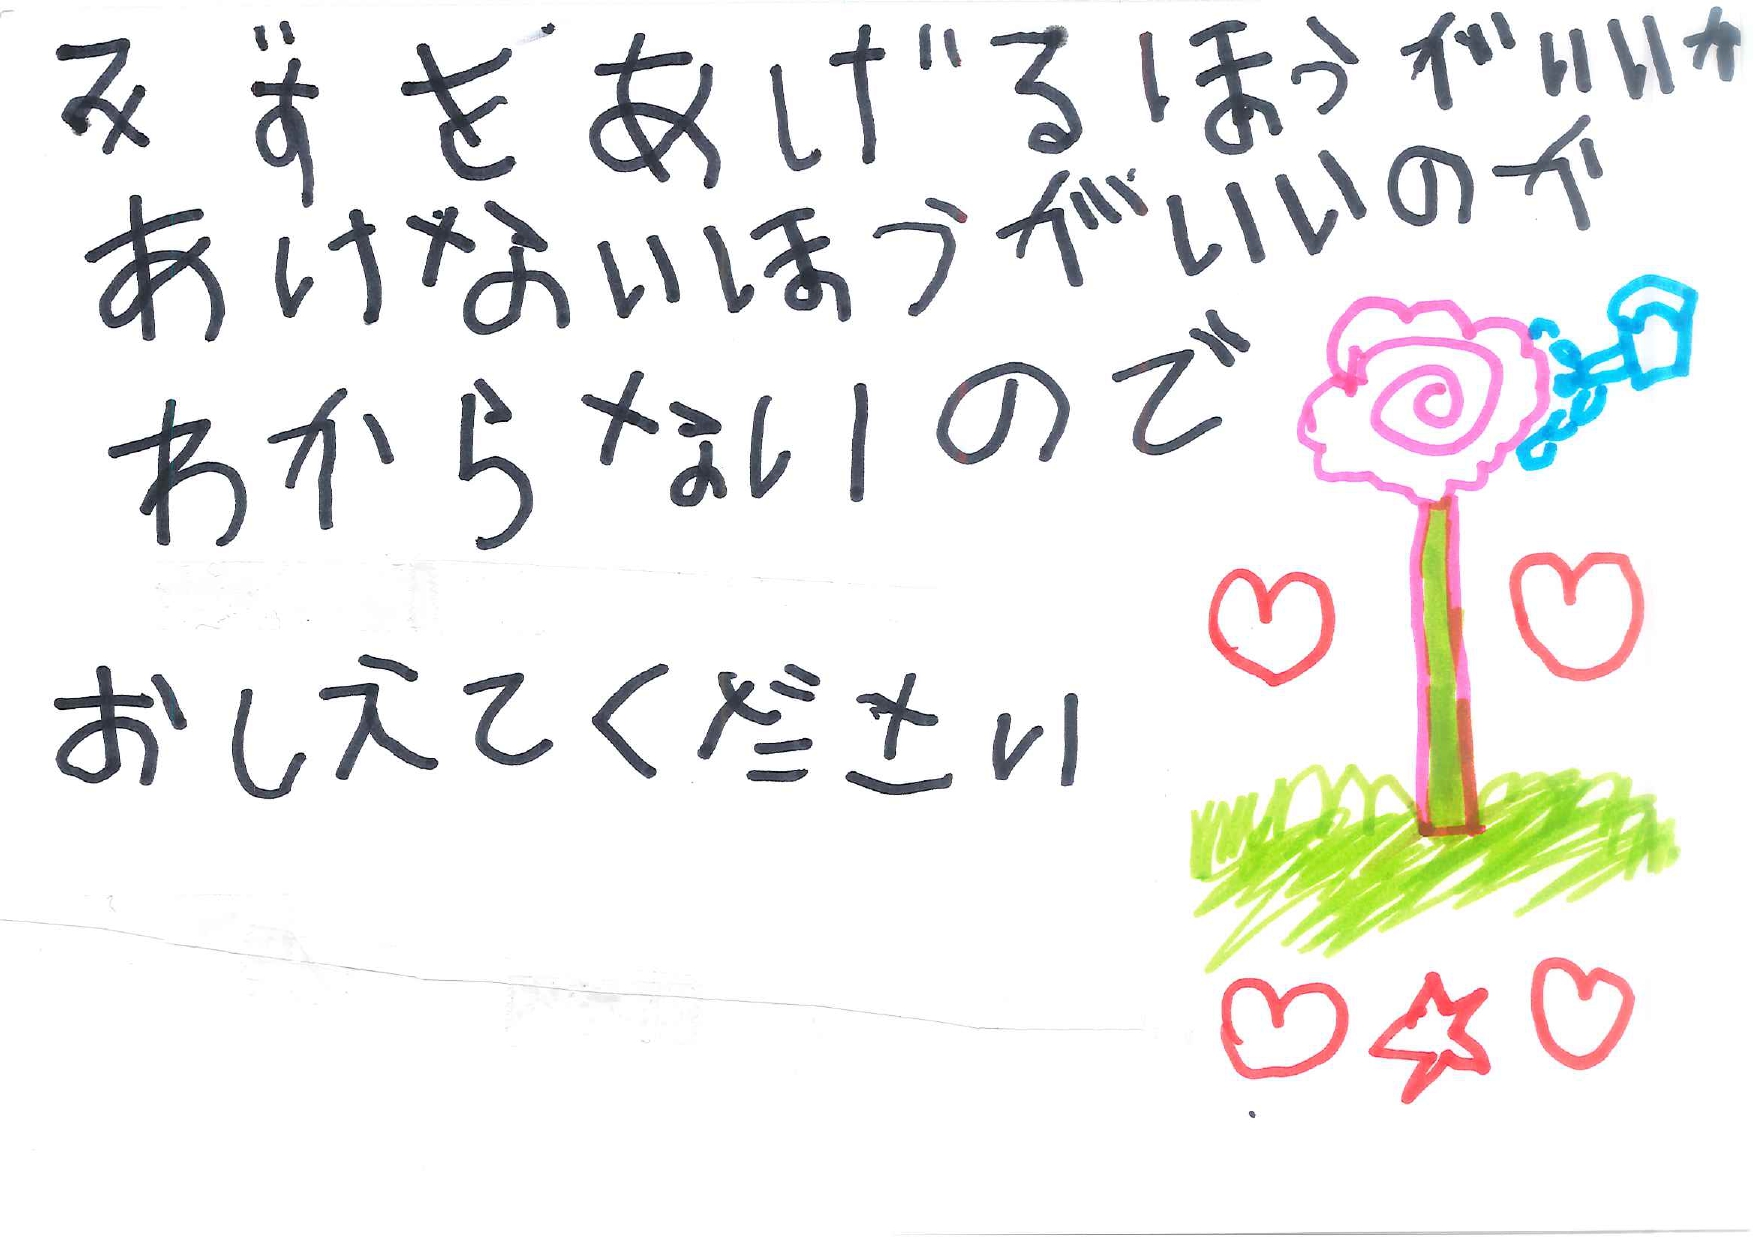 みずをあげるほうがいいか
あげないほうがいいのか
わからないので
おしえてください